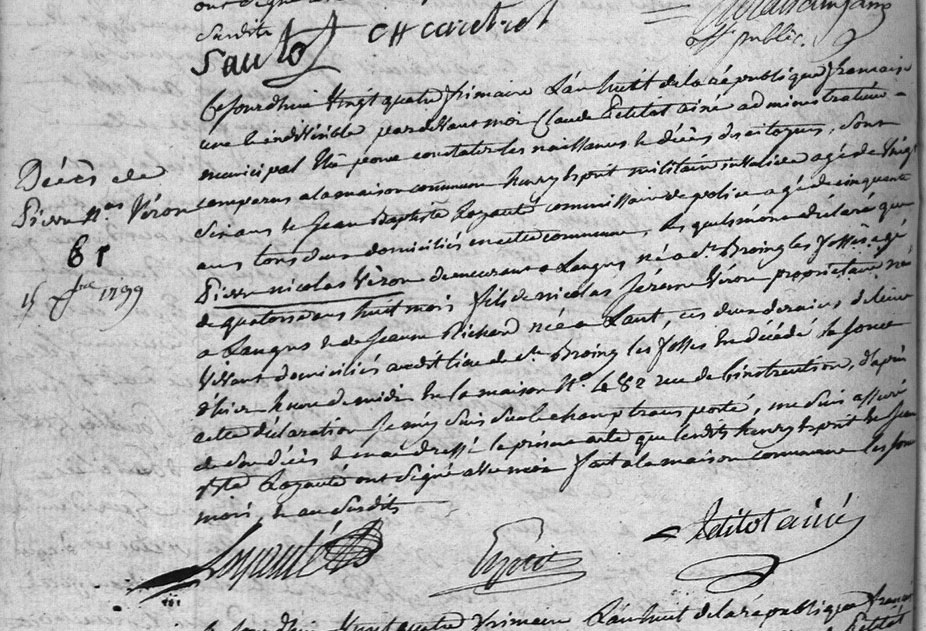 susdite
Sautot
off. public.
Cejourdhui Vingt quatre frimaire L'an huit de la république francaise
une et indivisible pardevant moi Claude Petitot ainé administrateur
municipal pour constater les naissances et décès des citoyens, Sont
comparus a la maison commune henry Esprit militaire invalide agé de Vingt
Six ans et Jean Baptiste Loyauté commissaire de police agé de cinquante
ans tous deux domiciliés en cette commune, Lesquels m'ont déclaré que
Pierre nicolas Véron demeurant a Langres né a St. Broing les fosses agé
de quatorze ans huit mois fils de nicolas Jérome Véron propriétaire né
a Langres et de Jeanne Richard née a Lant, ces deux derniers de leur
Vivant domiciliés audit lieu de St. Broing les fosses est décédé le jour
d'hier heure de midi en la maison No. 82 rue de l'instruction, d'après
cette déclaration je me suis sur le champ transporté, me suis assuré
de son décès et en ai dressé le présent acte que lesdits henry Esprit et Jean
Bte Loyauté ont signé avec moi fait a la maison commune les jour
mois, et an susdits
Décès de
Pierre Nas Véron
61
15 Xbre 1799
Loyauté
Esprit
Petitot ainé
Cejourdhui Vingt quatre frimaire L'an huit de la république